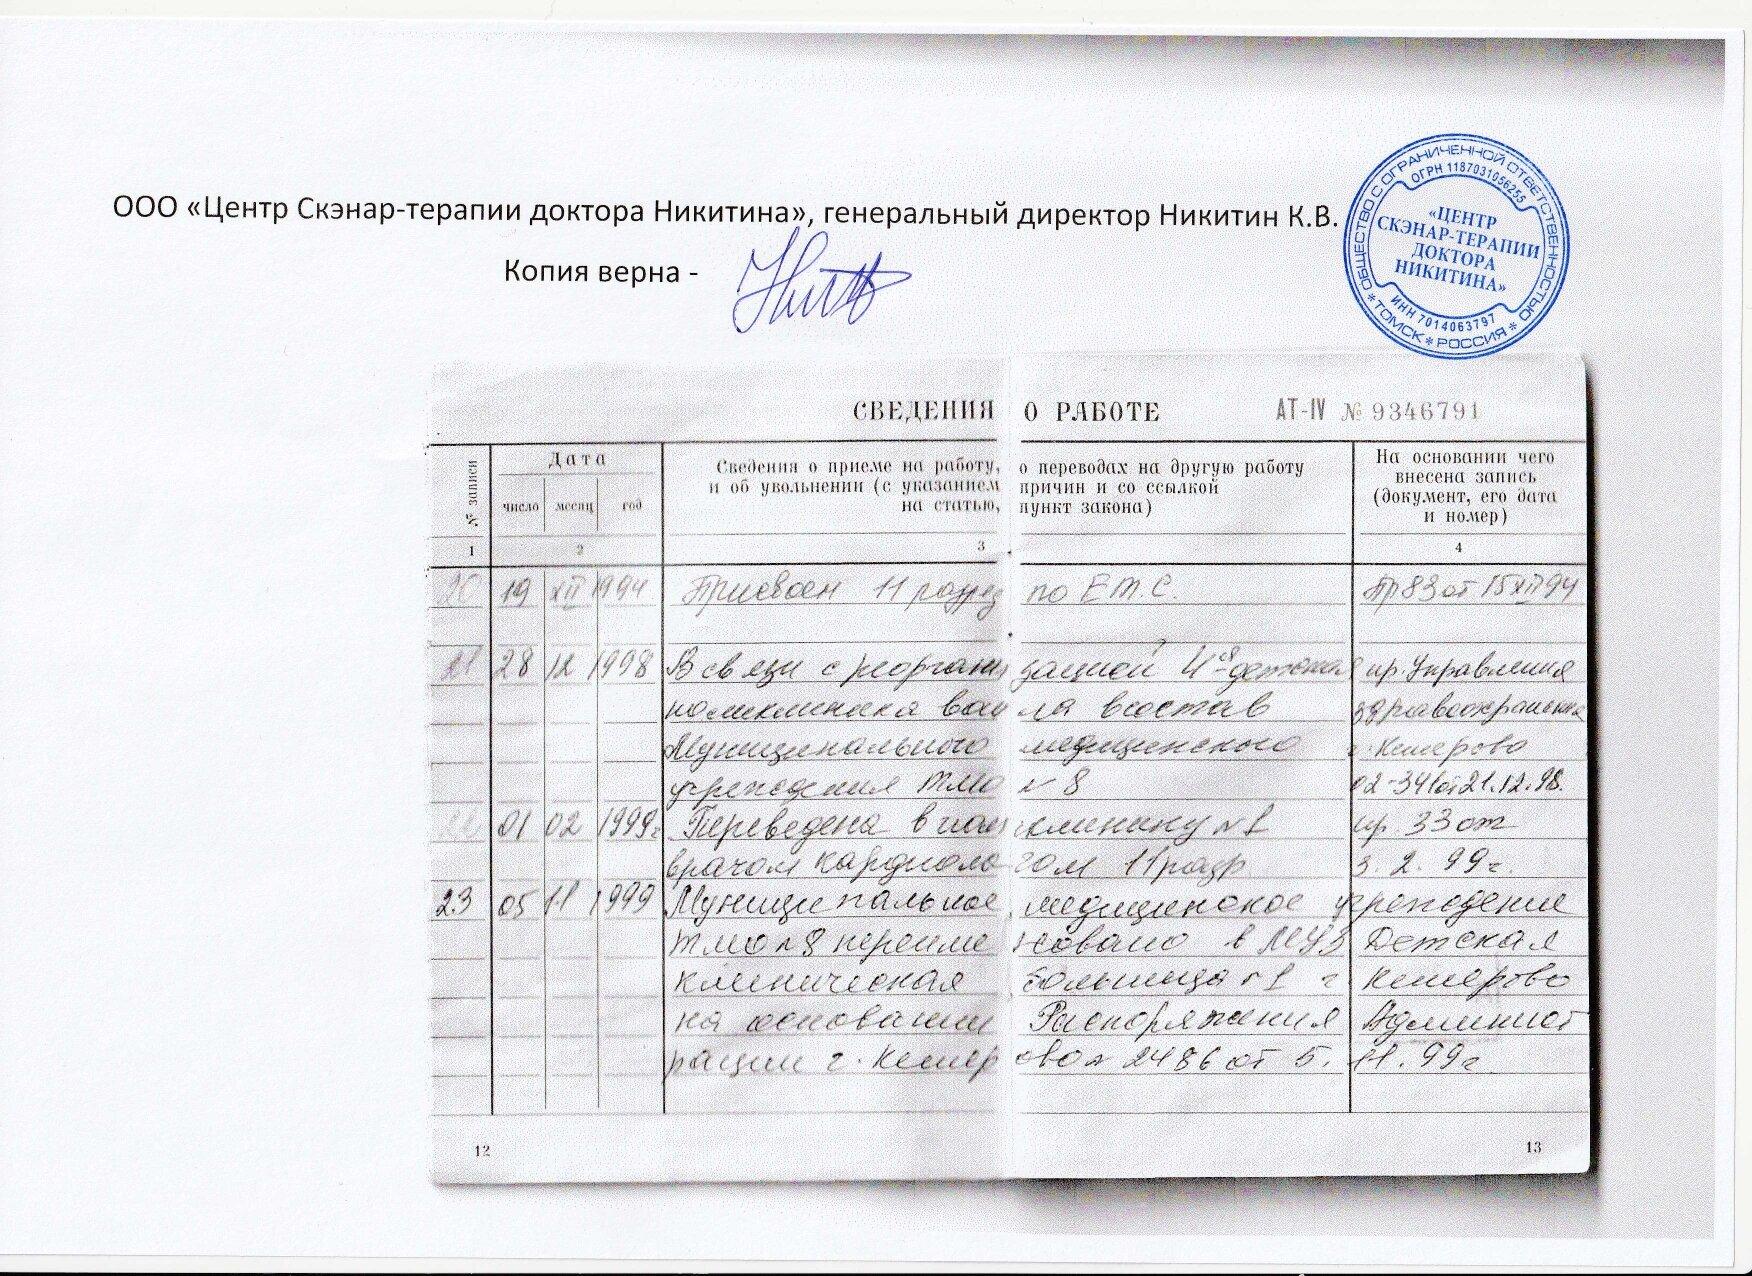 ООО «Центр Скэнар-терапии доктора Никитина», генеральный директор Никитин К.В.
Копия верна -
ОБЩЕСТВО С ОГРАНИЧЕННОЙ ОТВЕТСТВЕННОСТЬЮ
ОГРН 1187031056255
«ЦЕНТР
СКЭНАР-ТЕРАПИИ
ДОКТОРА
НИКИТИНА»
ИНН 7014063797
* ТОМСК * РОССИЯ *
СВЕДЕНИЯ О РАБОТЕ AT-IV № 9346791
№ записи
Дата
число месяц год
Сведения о приеме на работу, о переводах на другую работу
и об увольнении (с указанием причин и со ссылкой
на статью, пункт закона)
На основании чего
внесена запись
(документ, его дата
и номер)
1 2 3 4
20 19 XII 1994 Присвоен 11 разряд по Е.Т.С. Пр 83 от 15 XII 94
21 28 12 1998 В связи с реорганизацией детская пр. Управления
поликлиника вошла в состав здравоохранения
Муниципального медицинского г. Кемерово
учреждения ТМО № 8 02-341 от 21.12.98.
22 01 02 1999г Переведена в поликлинику №1 пр. 33 от
врачом кардиологом 11 разр. 3.2.99г.
23 05 11 1999 Муниципальное медицинское учреждение
ТМО №8 переименовано в МУЗ Детская
клиническая больница №1 г Кемерово
на основании Распоряжения Админист
рации г. Кемерово № 2486 от 5.11.99г.
12 13